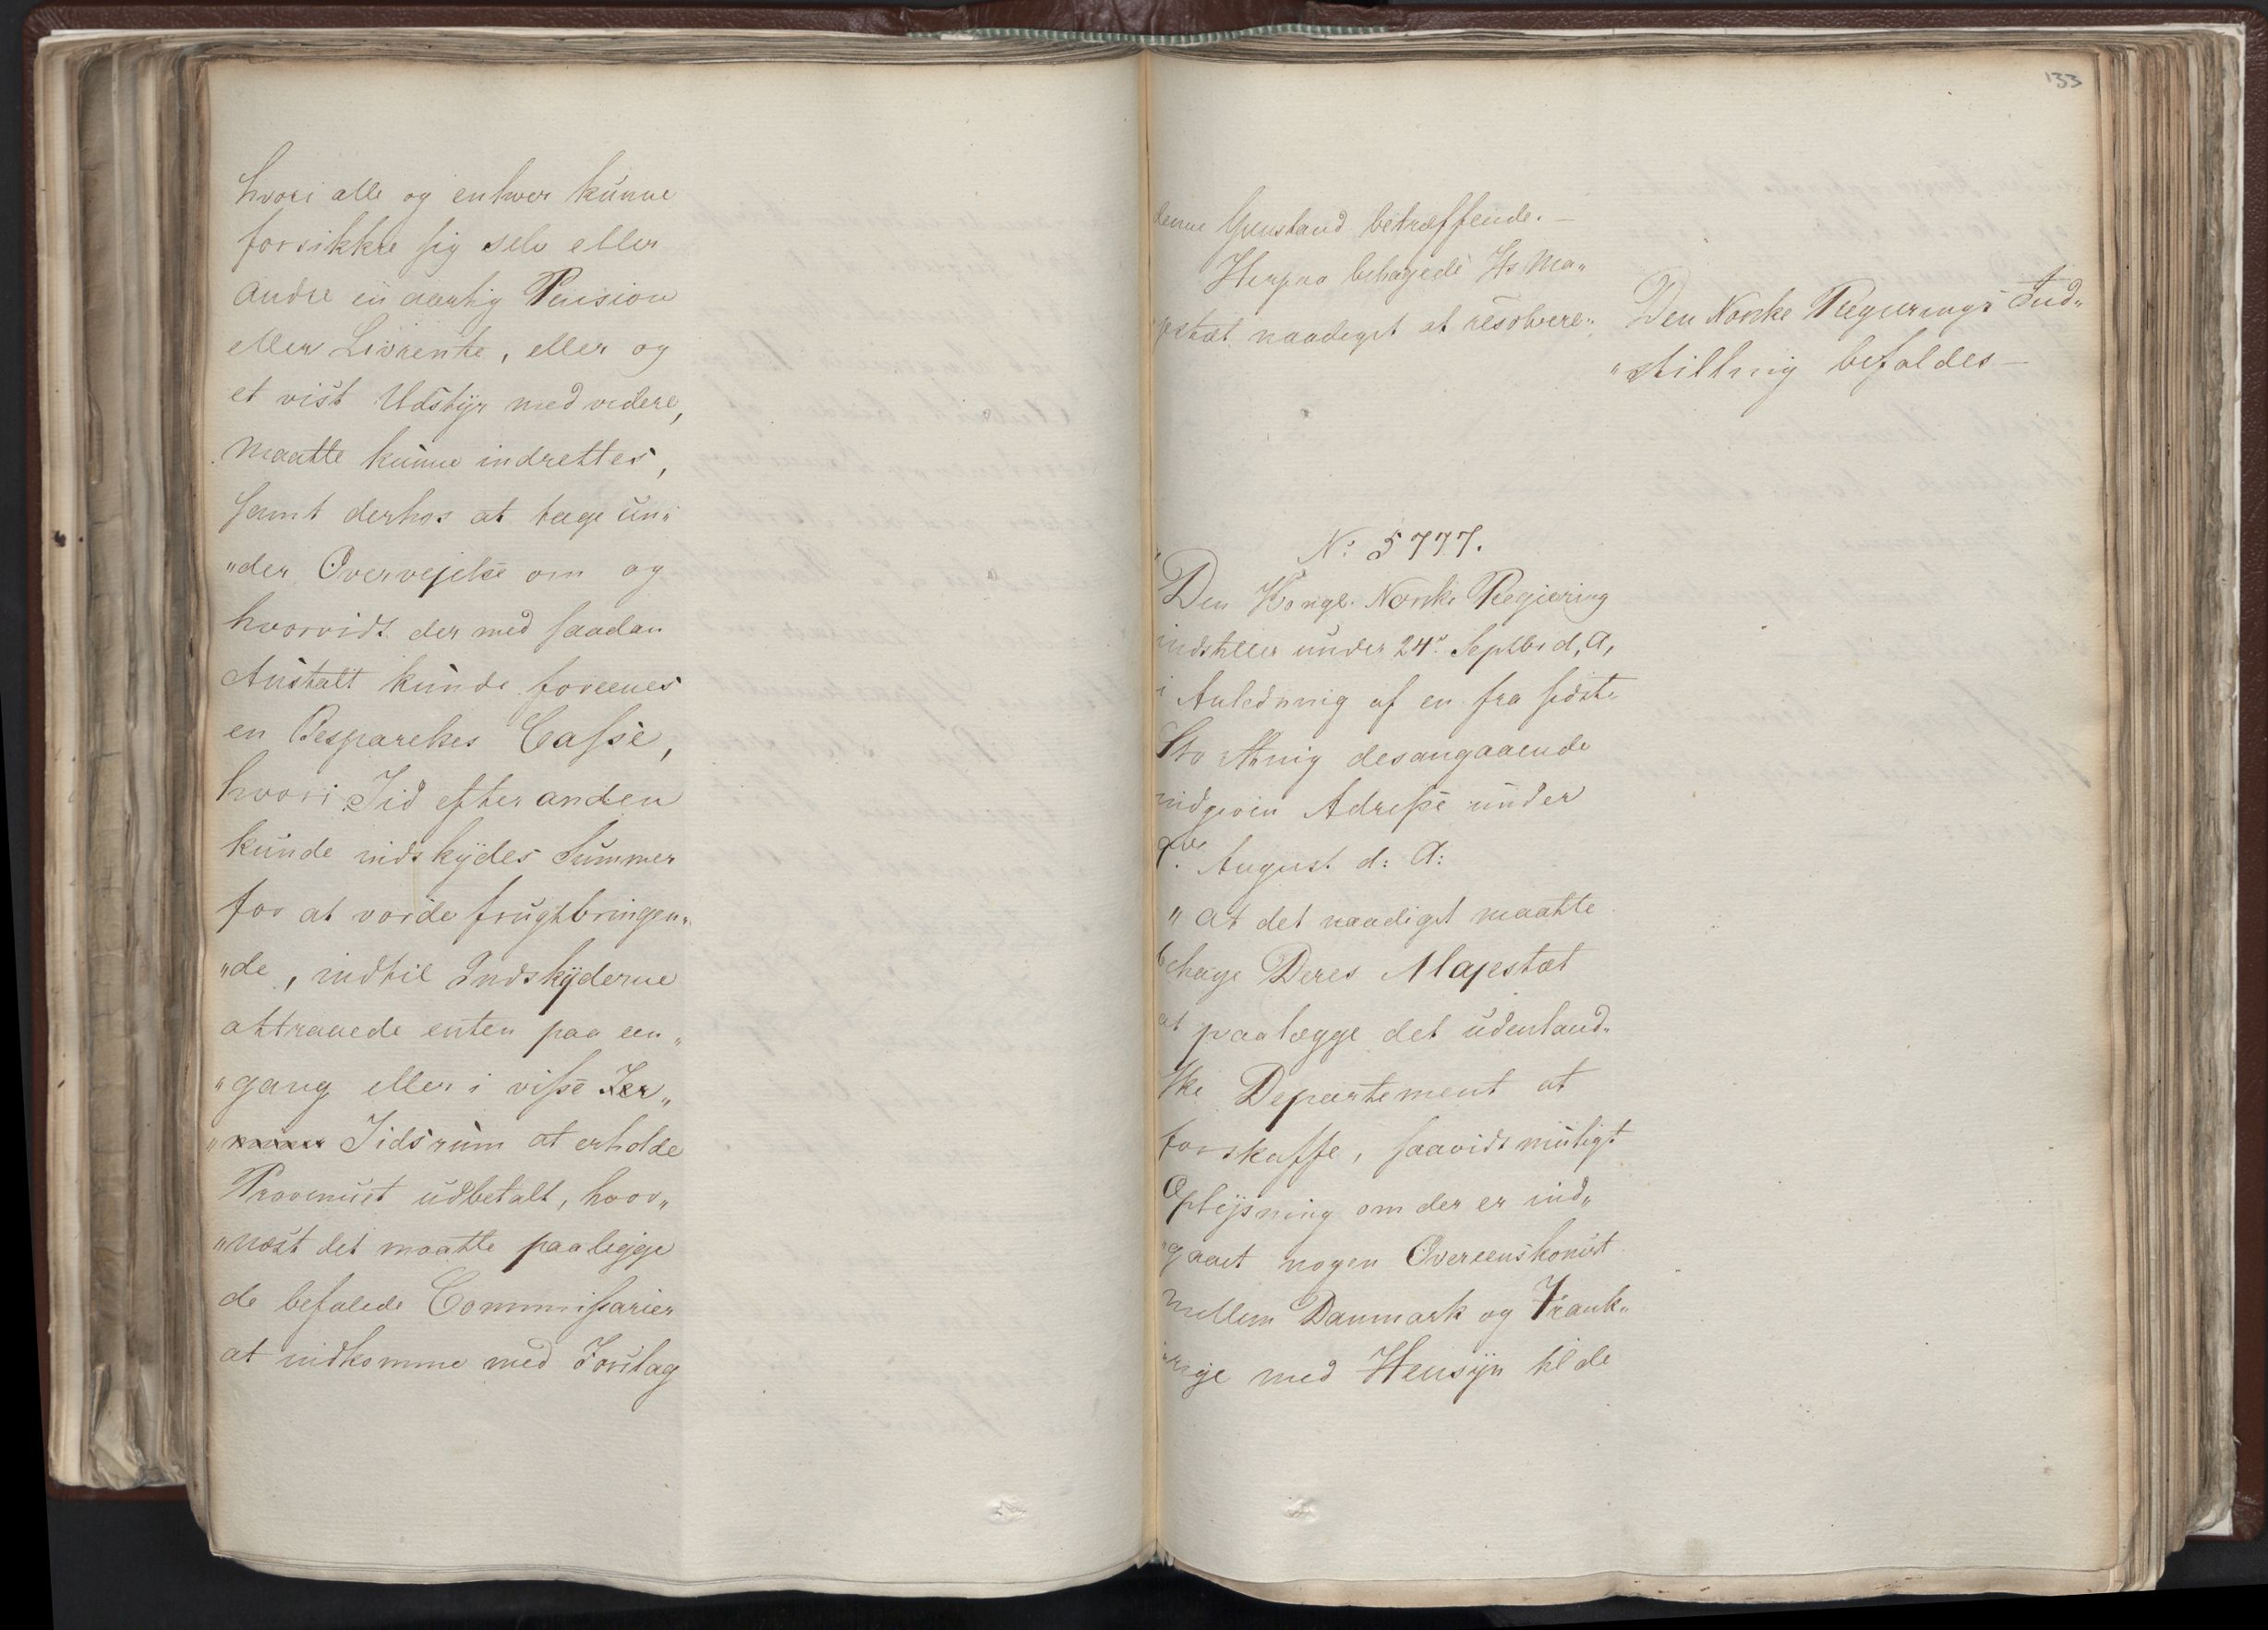 hvori alle og enhver kunne
forsikkre sig selv eller
andre en aarlig Pension
eller Livrente, eller og
et vist Udstÿr med videre,
maatte kunne indrettes,
samt derhos at tage un„
„der Overvejelse om og
hvorvidt der med saadan
Anstalt kunde foreenes
en Besparelses Casse,
hvori Tid efter anden
kunde indskÿdes Summer
for at vorde frugtbringen„
„de, indtil Indskÿderne
attraaede enten paa een„
„gang eller i visse Ter„
„miner Tidsrum at erholde
Provenuet udbetalt, hvor„
„næst det maatte paalegge
de befalede Commissarier
at indkomme med Forslag
133
denne Gjenstand betræffende. —
Herpaa behagede Hs Ma„
jestæt naadigst at resolvere„
Den Norske Regjerings Ind„
„stilling befaldes —
No: 5777.
Den Kongl. Norske Regjering
indstiller under 24de Septbr d. A,
i Anledning af en fra sidste
Storthing desangaaende
indgiven Adresse under
August d: A:
„ at det naadigst maatte
behage Deres Majestæt
at paalægge det udenland„
ske Departement at
forskaffe, saavidt muligt
Oplÿsning om der er ind„
„gaaet nogen Overeenskomst
mellem Danmark og Frank„
„rige med Hensÿn til de